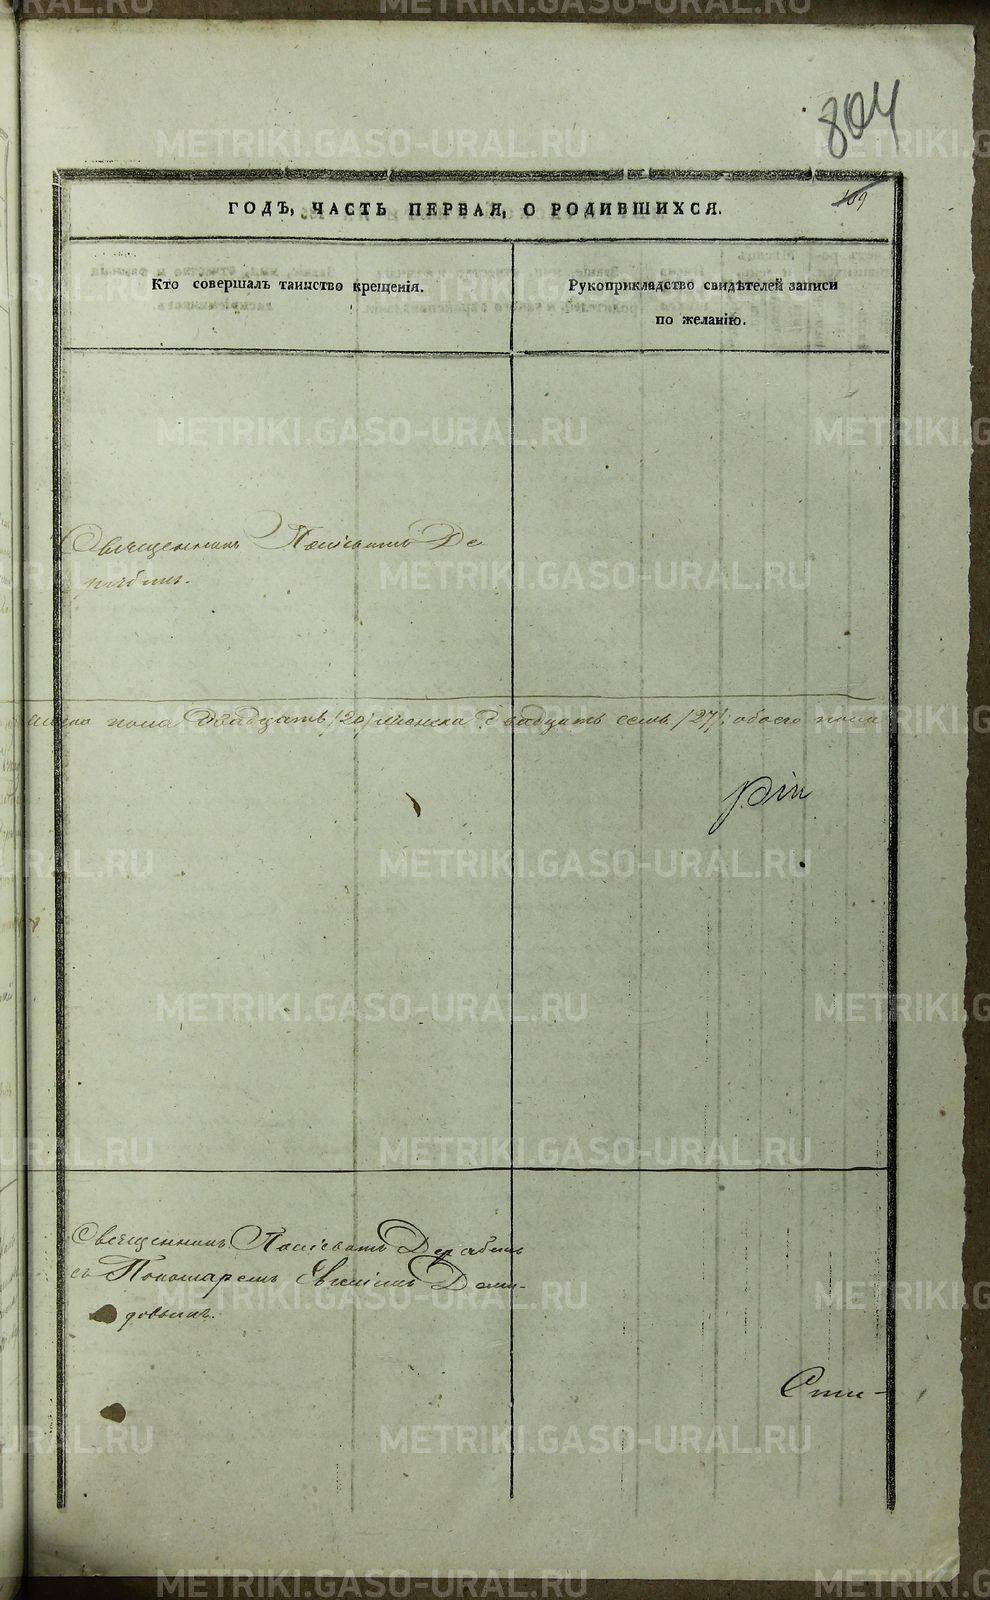 804
109
ГОДЪ, ЧАСТЬ ПЕРВАЯ, О РОДИВШИХСЯ.
Кто совершалъ таинство крещенія.
Рукоприкладство свидѣтелей записи
по желанію.
Священникъ Де
рябинъ.
пола двадцать /20/ женска двадцать семь /27/, обоего пола
Священникъ Дерябинъ
съ Пономаремъ Деми-
довымъ.
METRIKI.GASO-URAL.RU